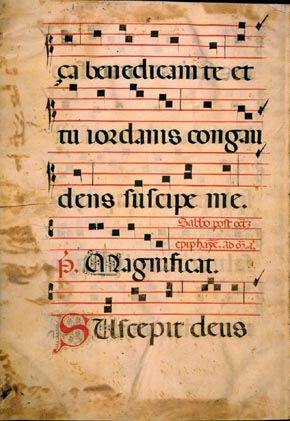 ça benedicam te et
tu iordanis congau
dens suscipe me.
Sabbo post oct.
epiphaꝫe. ad
p̄. Magnificat.
Suscepit deus